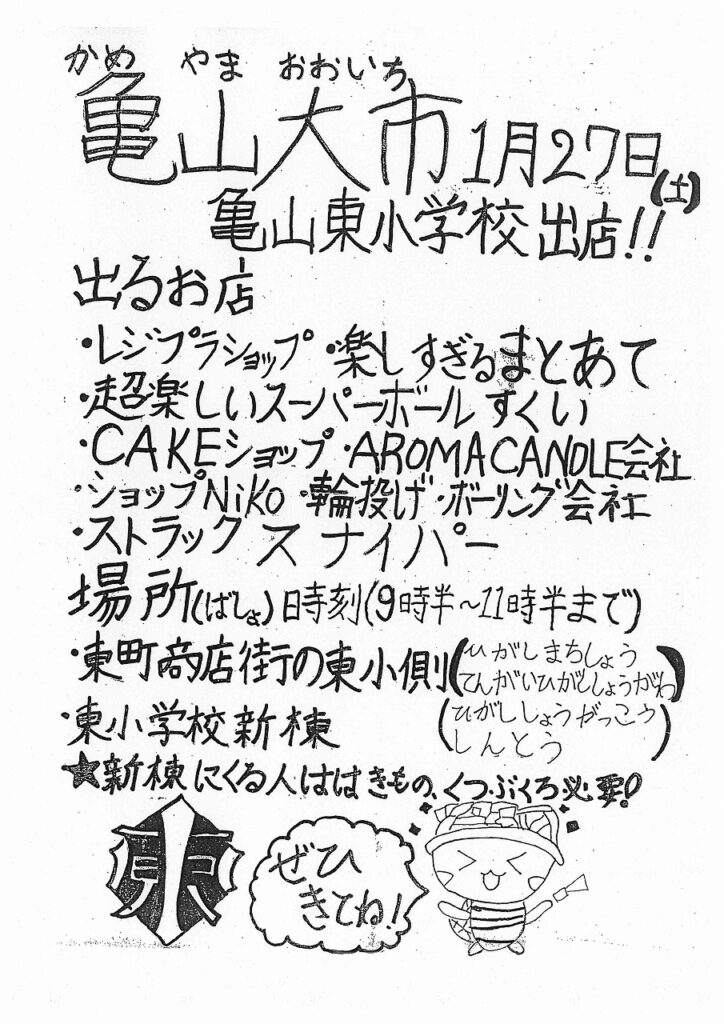 かめ やま おおいち
亀山大市 1月27日(土)
亀山東小学校出店!!
出るお店
・レジプラショップ ・楽しすぎるまとあて
・超楽しいスーパーボールすくい
・CAKEショップ ・AROMACANDLE会社
・ショップNiko ・輪投げ ・ボーリング会社
・ストラックスナイパー
場所(ばしょ)日時刻(9時半~11時半まで)
・東町商店街の東小側(ひがしまちしょう
てんがいひがししょうがわ)
・東小学校新棟(ひがししょうがっこう
しんとう)
★新棟にくる人ははきもの、くつ・ぶくろ必要!
東
ぜひ
きてね!